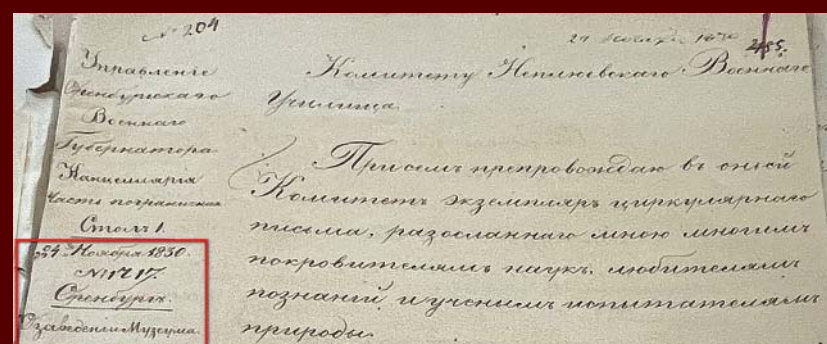 № 204
Управленіе
Оренбургскаго
Военнаго
Губернатора
Канцелярія
Часть пограничная
Столъ 1.
24 Ноября 1830.
№ 1717.
Оренбургъ.
О заведеніи Музеума.
27 Ноября 1830
Комитету Неплюевскаго Военнаго
Училища.
При семъ препровождаю въ оный
Комитетъ экземпляръ циркулярнаго
письма, разосланнаго мною многимъ
покровителямъ наукъ, любителямъ
познаній и ученымъ испытателямъ
природы.